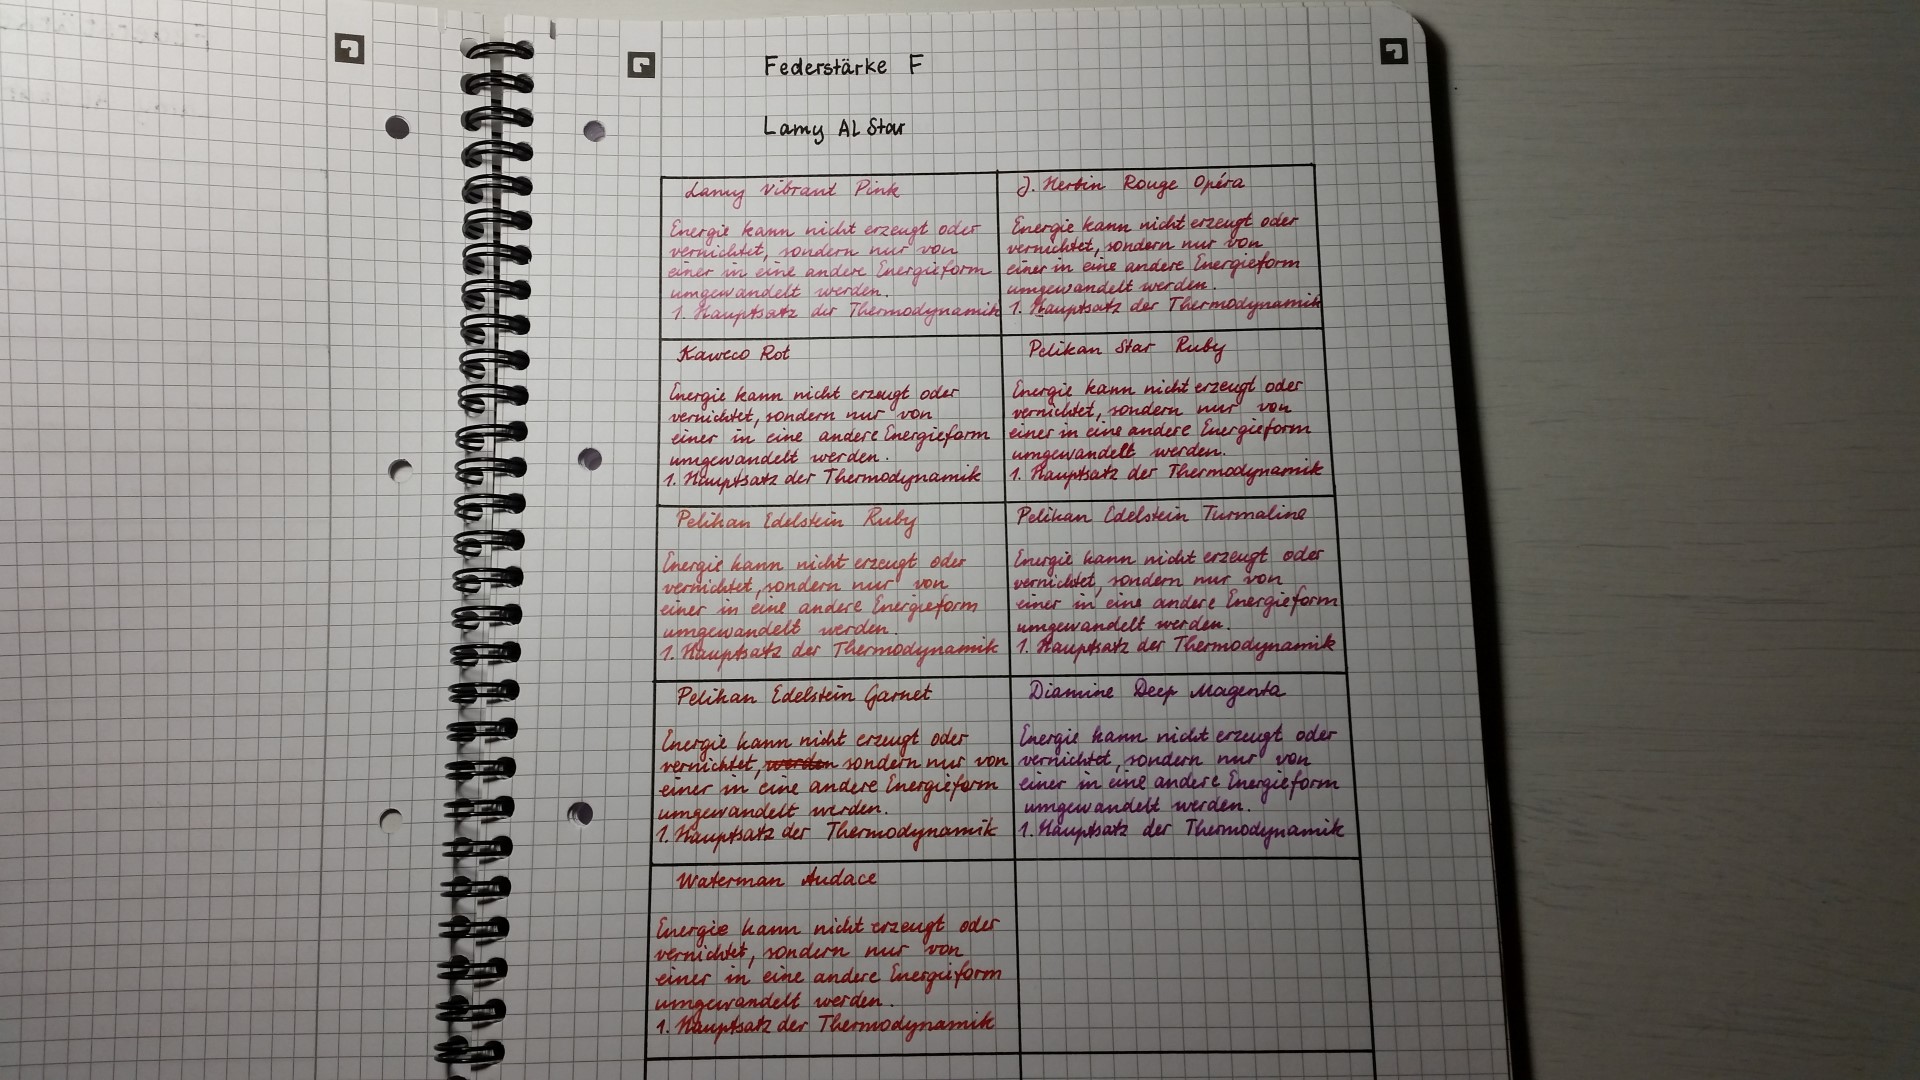 Federstärke F
Lamy AL Star
Lamy Vibrant Pink
Energie kann nicht erzeugt oder
vernichtet, sondern nur von
einer in eine andere Energieform
umgewandelt werden.
1. Hauptsatz der Thermodynamik
J. Herbin Rouge Opéra
Energie kann nicht erzeugt oder
vernichtet, sondern nur von
einer in eine andere Energieform
umgewandelt werden.
1. Hauptsatz der Thermodynamik
Kaweco Rot
Energie kann nicht erzeugt oder
vernichtet, sondern nur von
einer in eine andere Energieform
umgewandelt werden.
1. Hauptsatz der Thermodynamik
Pelikan Star Ruby
Energie kann nicht erzeugt oder
vernichtet, sondern nur von
einer in eine andere Energieform
umgewandelt werden.
1. Hauptsatz der Thermodynamik
Pelikan Edelstein Ruby
Energie kann nicht erzeugt oder
vernichtet, sondern nur von
einer in eine andere Energieform
umgewandelt werden.
1. Hauptsatz der Thermodynamik
Pelikan Edelstein Turmaline
Energie kann nicht erzeugt oder
vernichtet, sondern nur von
einer in eine andere Energieform
umgewandelt werden.
1. Hauptsatz der Thermodynamik
Pelikan Edelstein Garnet
Energie kann nicht erzeugt oder
vernichtet, werden sondern nur von
einer in eine andere Energieform
umgewandelt werden.
1. Hauptsatz der Thermodynamik
Diamine Deep Magenta
Energie kann nicht erzeugt oder
vernichtet, sondern nur von
einer in eine andere Energieform
umgewandelt werden.
1. Hauptsatz der Thermodynamik
Waterman Audace
Energie kann nicht erzeugt oder
vernichtet, sondern nur von
einer in eine andere Energieform
umgewandelt werden.
1. Hauptsatz der Thermodynamik